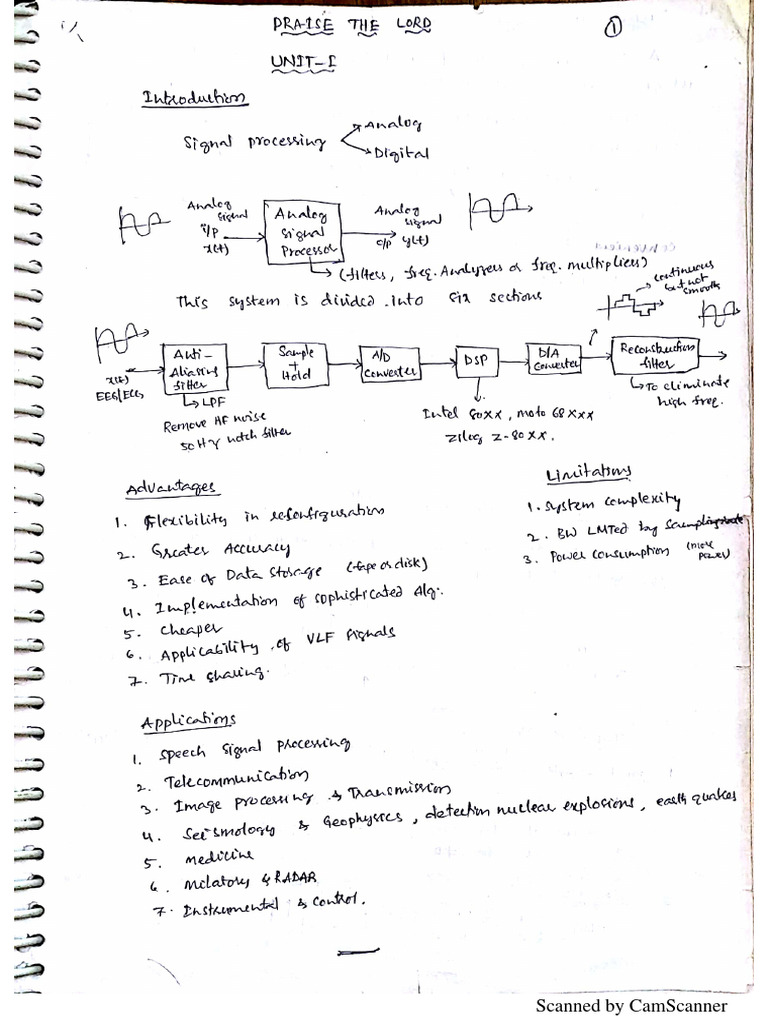 PRAISE THE LORD
1
UNIT-I
Introduction
Signal processing
Analog
Digital
Analog Signal
i/p
x(t)
Analog Signal Processor
Analog Signal
o/p y(t)
(filters, freq. Analyzers or freq. multipliers)
This system is divided into six sections
continuous but not smooth
x(t)
EEG/ECG
Anti-Aliasing filter
Sample + Hold
A/D Converter
DSP
D/A Converter
Reconstruction filter
LPF
Remove HF noise
50 Hz notch filter
Intel 80XX, moto 68XXX
Zilog Z-80XX.
To eliminate high freq.
Advantages
1. Flexibility in reconfiguration
2. Greater Accuracy
3. Ease of Data Storage (tape or disk)
4. Implementation of sophisticated Alg.
5. Cheaper
6. Applicability of VLF signals
7. Time sharing.
Limitations
1. System complexity
2. BW LMTed by Sampling rate
3. Power Consumption (more power)
Applications
1. Speech Signal Processing
2. Telecommunication
3. Image Processing & Transmission
4. Seismology & Geophysics, detection nuclear explosions, earth quakes
5. medicine
6. Milatory & RADAR
7. Instrumental & control.
Scanned by CamScanner